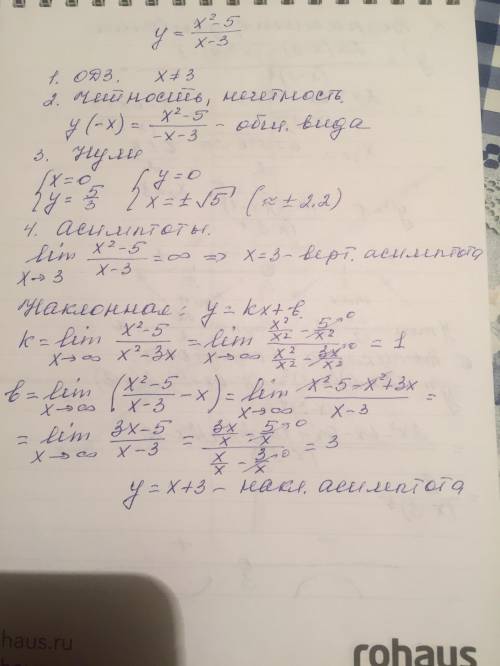 y = \frac{x²-5}{x-3}
1. ОДЗ. x≠3
2. Четность, нечетность.
y(-x) = \frac{x²-5}{-x-3} - общ. вида
3. Нули
{x=0 {y=0
{y=\frac{5}{3} {x=±√5 (≈±2.2)
4. Асимптоты.
lim_{x→3} \frac{x²-5}{x-3} = ∞ ⇒ x=3 - верт. асимптота
Наклонная: y=kx+b.
k = lim_{x→∞} \frac{x²-5}{x²-3x} = lim_{x→∞} \frac{\frac{x²}{x²} - \frac{5}{x²}→0}{\frac{x²}{x²} - \frac{3x}{x²}→0} = 1
b = lim_{x→∞} (\frac{x²-5}{x-3} - x) = lim_{x→∞} \frac{x²-5-x²+3x}{x-3} =
= lim_{x→∞} \frac{3x-5}{x-3} = \frac{\frac{3x}{x} - \frac{5}{x}→0}{\frac{x}{x} - \frac{3}{x}→0} = 3
y=x+3 - накл. асимптота
haus.ru
rohaus